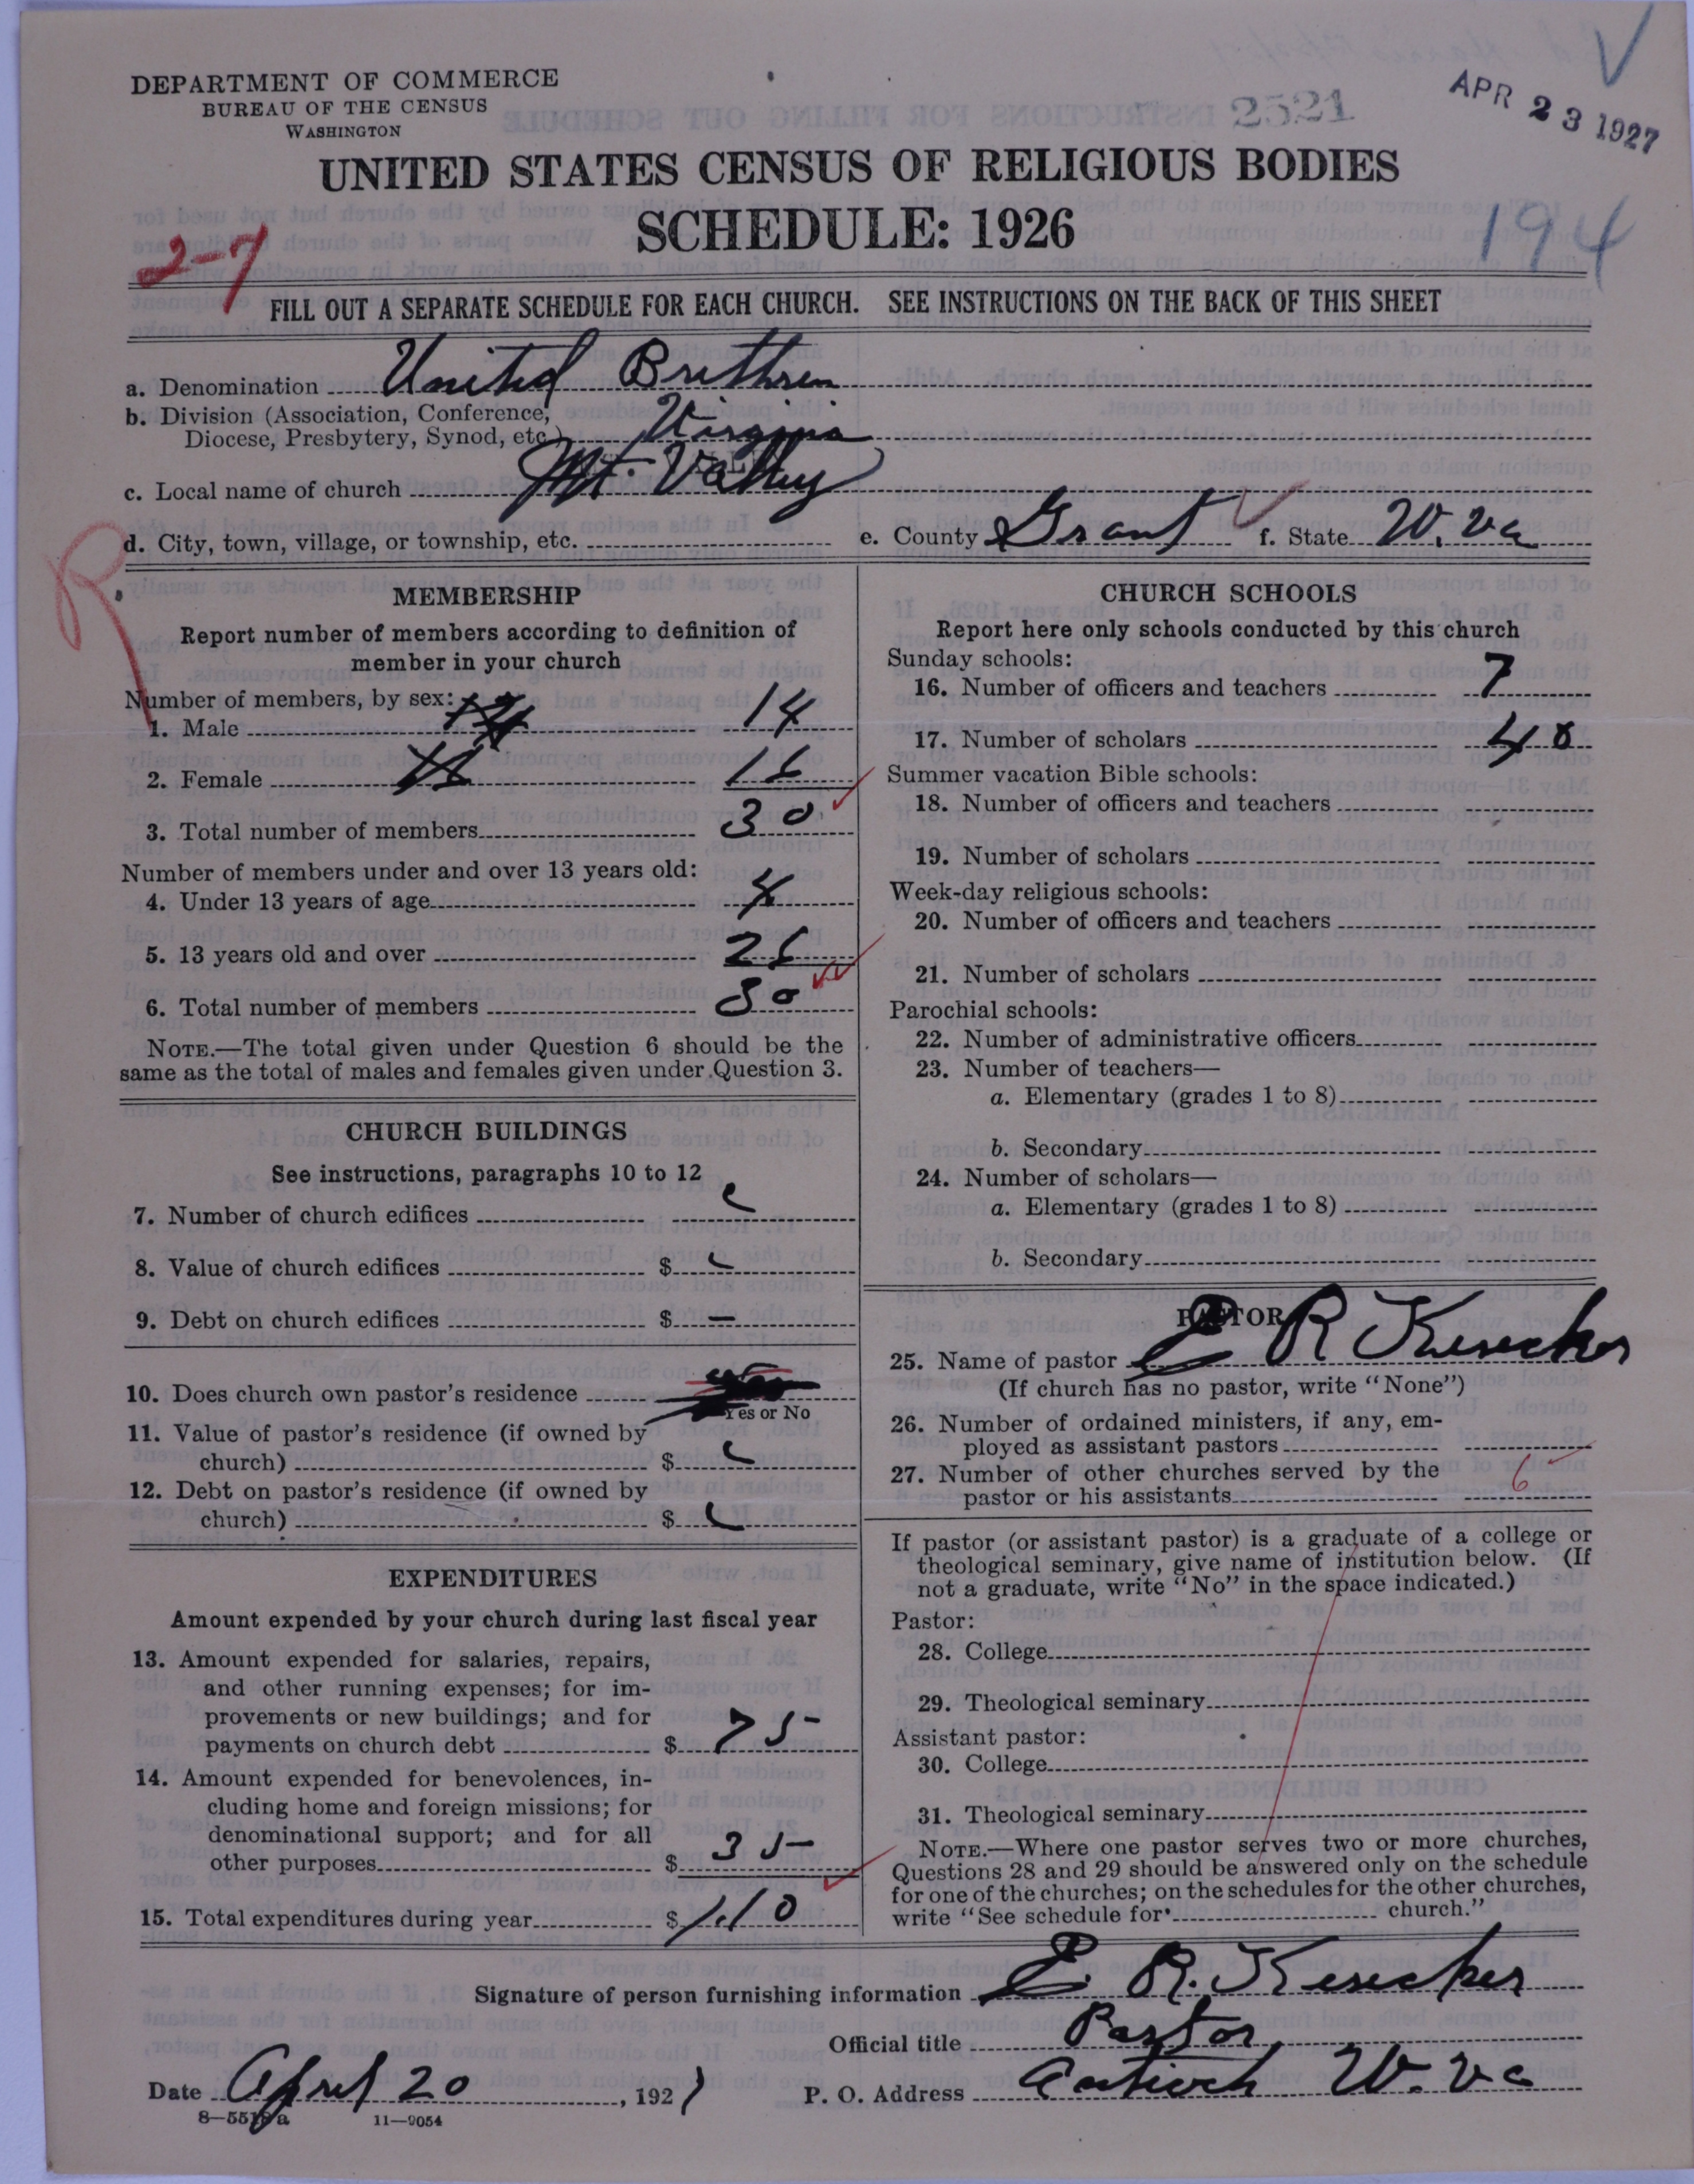 DEPARTMENT OF COMMERCE
BUREAU OF THE CENSUS
WASHINGTON
2521
APR 23 1927
UNITED STATES CENSUS OF RELIGIOUS BODIES
SCHEDULE: 1926
194
2-7
FILL OUT A SEPARATE SCHEDULE FOR EACH CHURCH. SEE INSTRUCTIONS ON THE BACK OF THIS SHEET
a. Denomination United Brethren
b. Division (Association, Conference,
Diocese, Presbytery, Synod, etc.) Virginia
c. Local name of church Mt. Valley
d. City, town, village, or township, etc.
e. County Grant f. State W. Va
R
MEMBERSHIP
Report number of members according to definition of
member in your church
Number of members, by sex:
1. Male 14
2. Female 16
3. Total number of members 30
Number of members under and over 13 years old:
4. Under 13 years of age 4
5. 13 years old and over 26
6. Total number of members 30
NOTE.—The total given under Question 6 should be the
same as the total of males and females given under Question 3.
CHURCH BUILDINGS
See instructions, paragraphs 10 to 12
7. Number of church edifices
8. Value of church edifices $
9. Debt on church edifices $ —
10. Does church own pastor's residence
Yes or No
11. Value of pastor's residence (if owned by
church) $
12. Debt on pastor's residence (if owned by
church) $
EXPENDITURES
Amount expended by your church during last fiscal year
13. Amount expended for salaries, repairs,
and other running expenses; for im-
provements or new buildings; and for
payments on church debt $ 75
14. Amount expended for benevolences, in-
cluding home and foreign missions; for
denominational support; and for all
other purposes $ 35
15. Total expenditures during year $ 110
CHURCH SCHOOLS
Report here only schools conducted by this church
Sunday schools:
16. Number of officers and teachers 7
17. Number of scholars 48
Summer vacation Bible schools:
18. Number of officers and teachers
19. Number of scholars
Week-day religious schools:
20. Number of officers and teachers
21. Number of scholars
Parochial schools:
22. Number of administrative officers
23. Number of teachers—
a. Elementary (grades 1 to 8)
b. Secondary
24. Number of scholars—
a. Elementary (grades 1 to 8)
b. Secondary
PASTOR
25. Name of pastor E R Kesecker
(If church has no pastor, write "None")
26. Number of ordained ministers, if any, em-
ployed as assistant pastors
27. Number of other churches served by the
pastor or his assistants 6
If pastor (or assistant pastor) is a graduate of a college or
theological seminary, give name of institution below. (If
not a graduate, write "No" in the space indicated.)
Pastor:
28. College
29. Theological seminary
Assistant pastor:
30. College
31. Theological seminary
NOTE.—Where one pastor serves two or more churches,
Questions 28 and 29 should be answered only on the schedule
for one of the churches; on the schedules for the other churches,
write "See schedule for church."
Signature of person furnishing information E. R. Kesecker
Official title Pastor
Date April 20, 1927
P. O. Address Antioch W. Va
8—5518a 11—9054